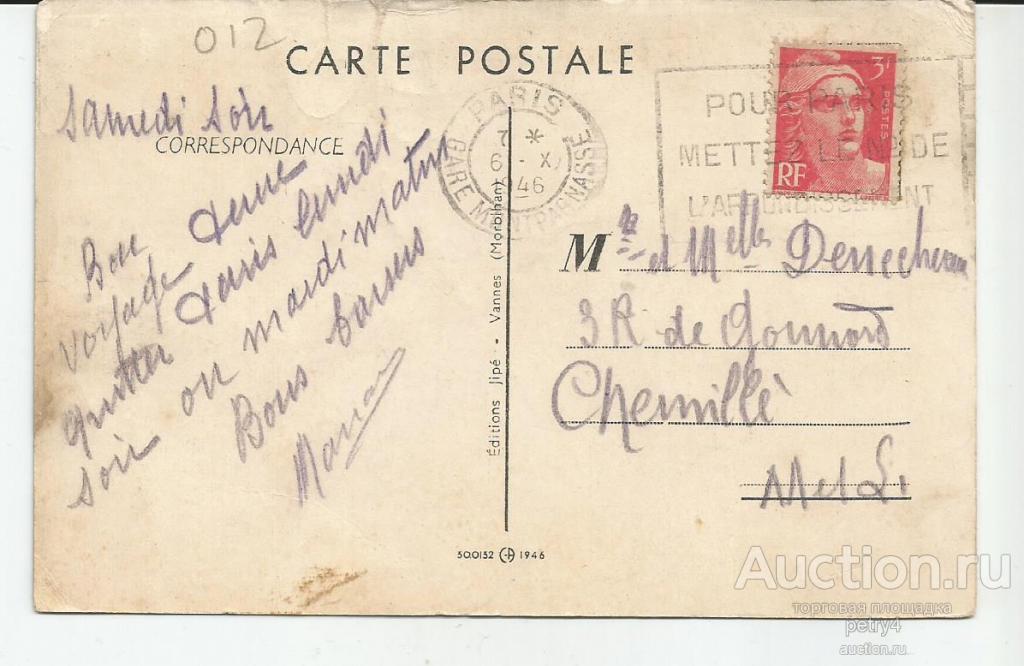 012
CARTE POSTALE
Samedi soir
CORRESPONDANCE
Bon
voyage
quitter Paris lundi
soir ou mardi matin
Bons baisers
PARIS
7 *
6 - X
1946
GARE MONTPARNASSE
POUR PARIS
METTEZ LE N° DE
L'ARRONDISSEMENT
3F
POSTES
RF
M et Melle
3 R de Gonnord
Chemillé
M et L.
Éditions Jipé - Vannes (Morbihan)
50.0152 1946
Auction.ru
торговая площадка
petry4
auction.ru